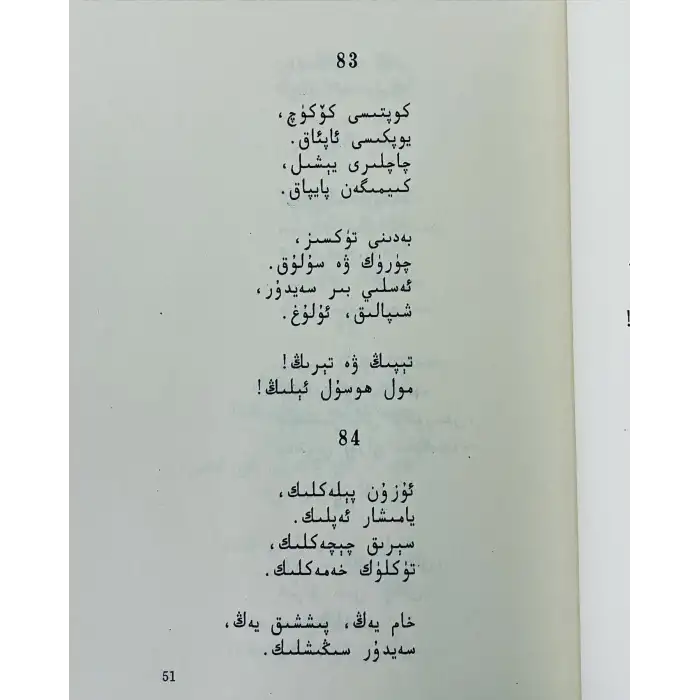 83
كوپتىسى كۆكۈچ،
يوپكىسى ئاپئاق.
چاچلىرى يېشىل،
كىيمىگەن پايپاق.
بەدىنى تۈكسىز،
چۈرۈك ۋە سۇلۇق.
ئەسلىي بىر سەيدۇر،
شىپالىق، ئۇلۇغ.
تېپىڭ ۋە تېرىڭ!
مول ھوسۇل ئېلىڭ!
84
ئۇزۇن پىلەكلىك،
يامىشار ئەپلىك.
سېرىق چېچەكلىك،
تۈكلۈك خەمەكلىك.
خام يەڭ، پىششىق يەڭ،
سەيدۇر سىڭىشلىك.
51
!